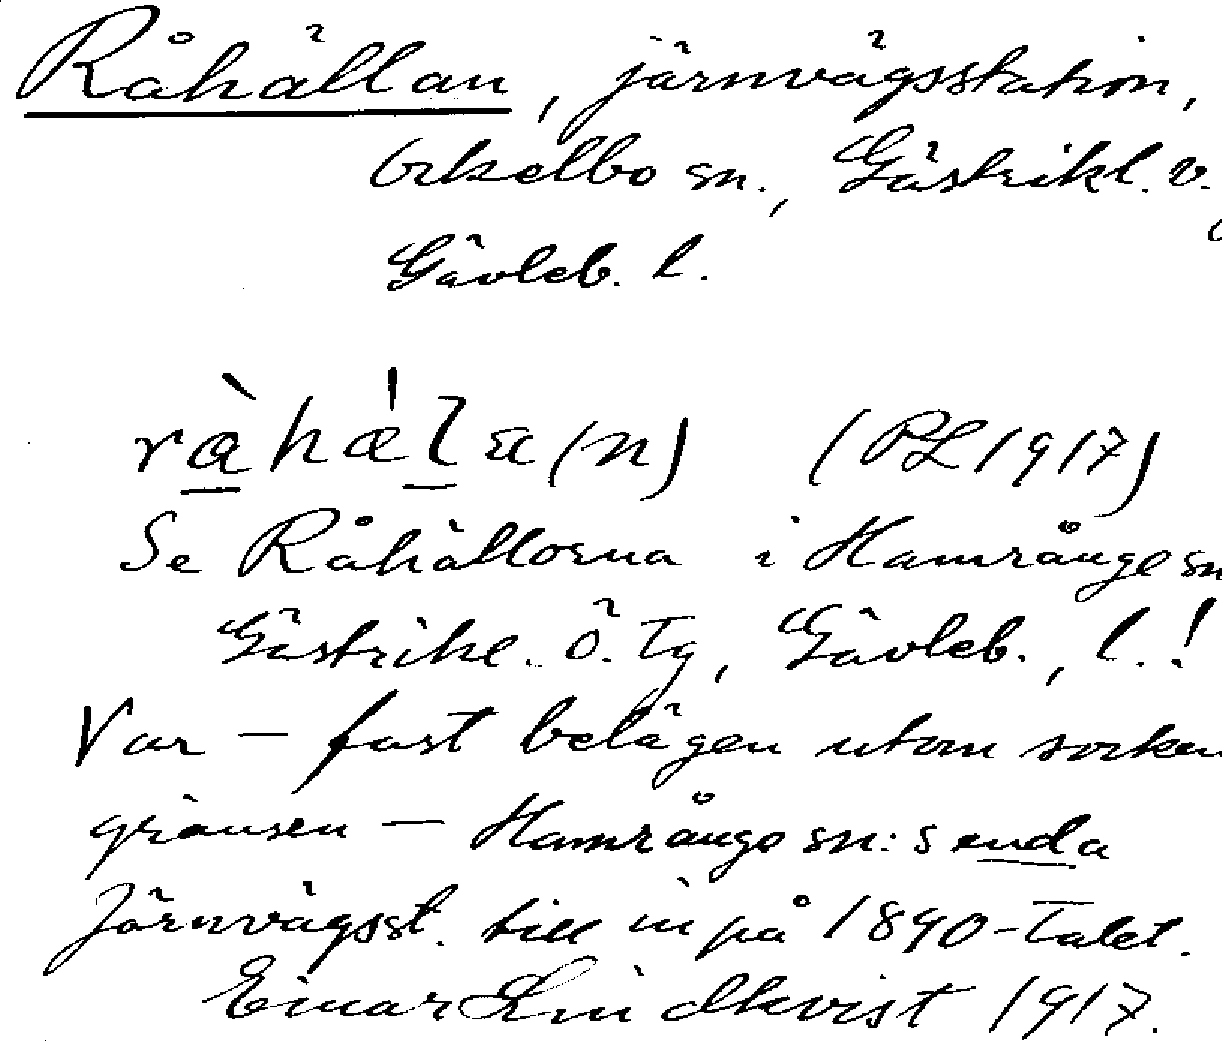 Råhällan, järnvägsstation,
Ockelbo sn., Gästrikl. v.
Gävleb. l.
(PL 1917)
Se Råhällorna i Hamrånge sn
Gästrikl. Ö. Tg, Gävleb., l.!
Var – fast belägen utom socken
gränsen – Hamrånge sn:s enda
Järnvägsst. till in på 1890-Talet.
Einar Lindkvist 1917.